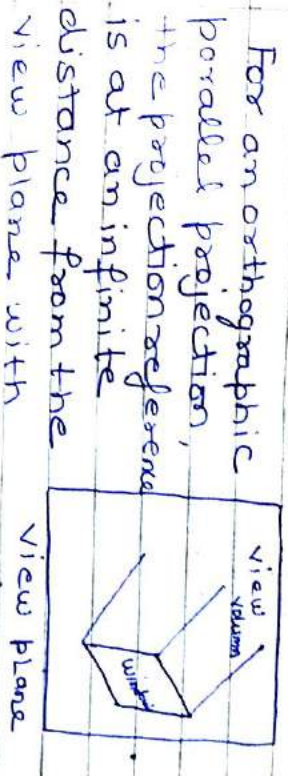 For an orthographic
parallel projection,
the projection reference
is at an infinite
distance from the
view plane with
view
volum
window
view plane